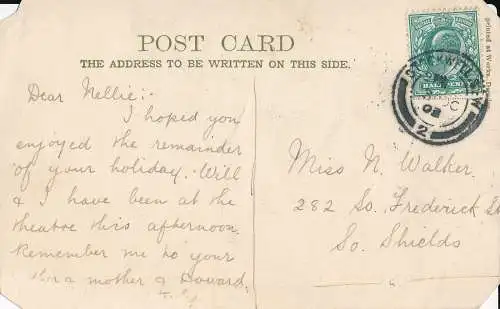 POST CARD
THE ADDRESS TO BE WRITTEN ON THIS SIDE.
HALFPENNY
2
Dear Nellie:-
I hoped you
enjoyed the remainder
of your holiday. Will
& I have been at the
theatre this afternoon.
Remember me to your
mother & Howard.
Miss N. Walker.
282 So. Frederick St
So. Shields
printed at